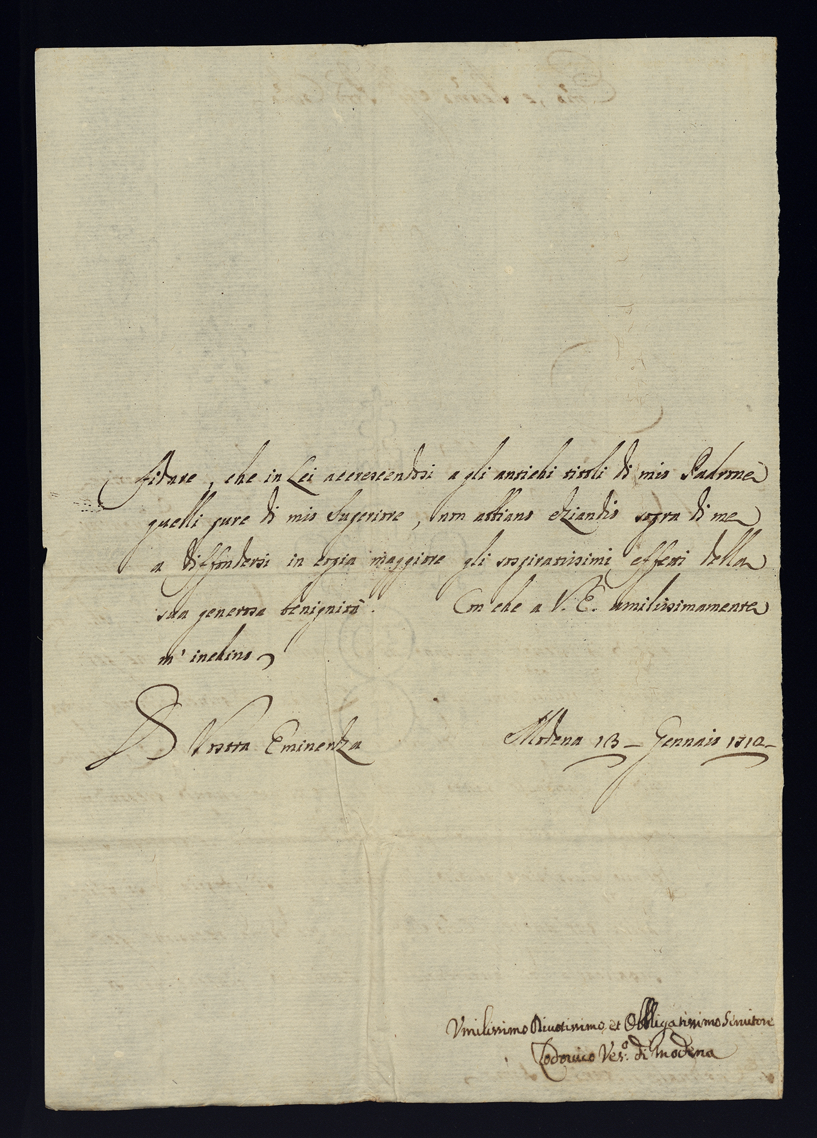 fidare, che in Lei accrescendosi a gli antichi titoli di mio Padrone
quelli pure di mio Superiore, non abbiano eziandio sopra di me
a diffondersi in copia maggiore gli sospiratissimi effetti della
sua generosa benignità. Con che a V. E. umilissimamente
m' inchino
Di Vostra Eminenza Modena 13 Gennaio
Vmilissimo Diuotissimo, et Obbligatissimo Seruitore
Lodouico Ves.º di Modena